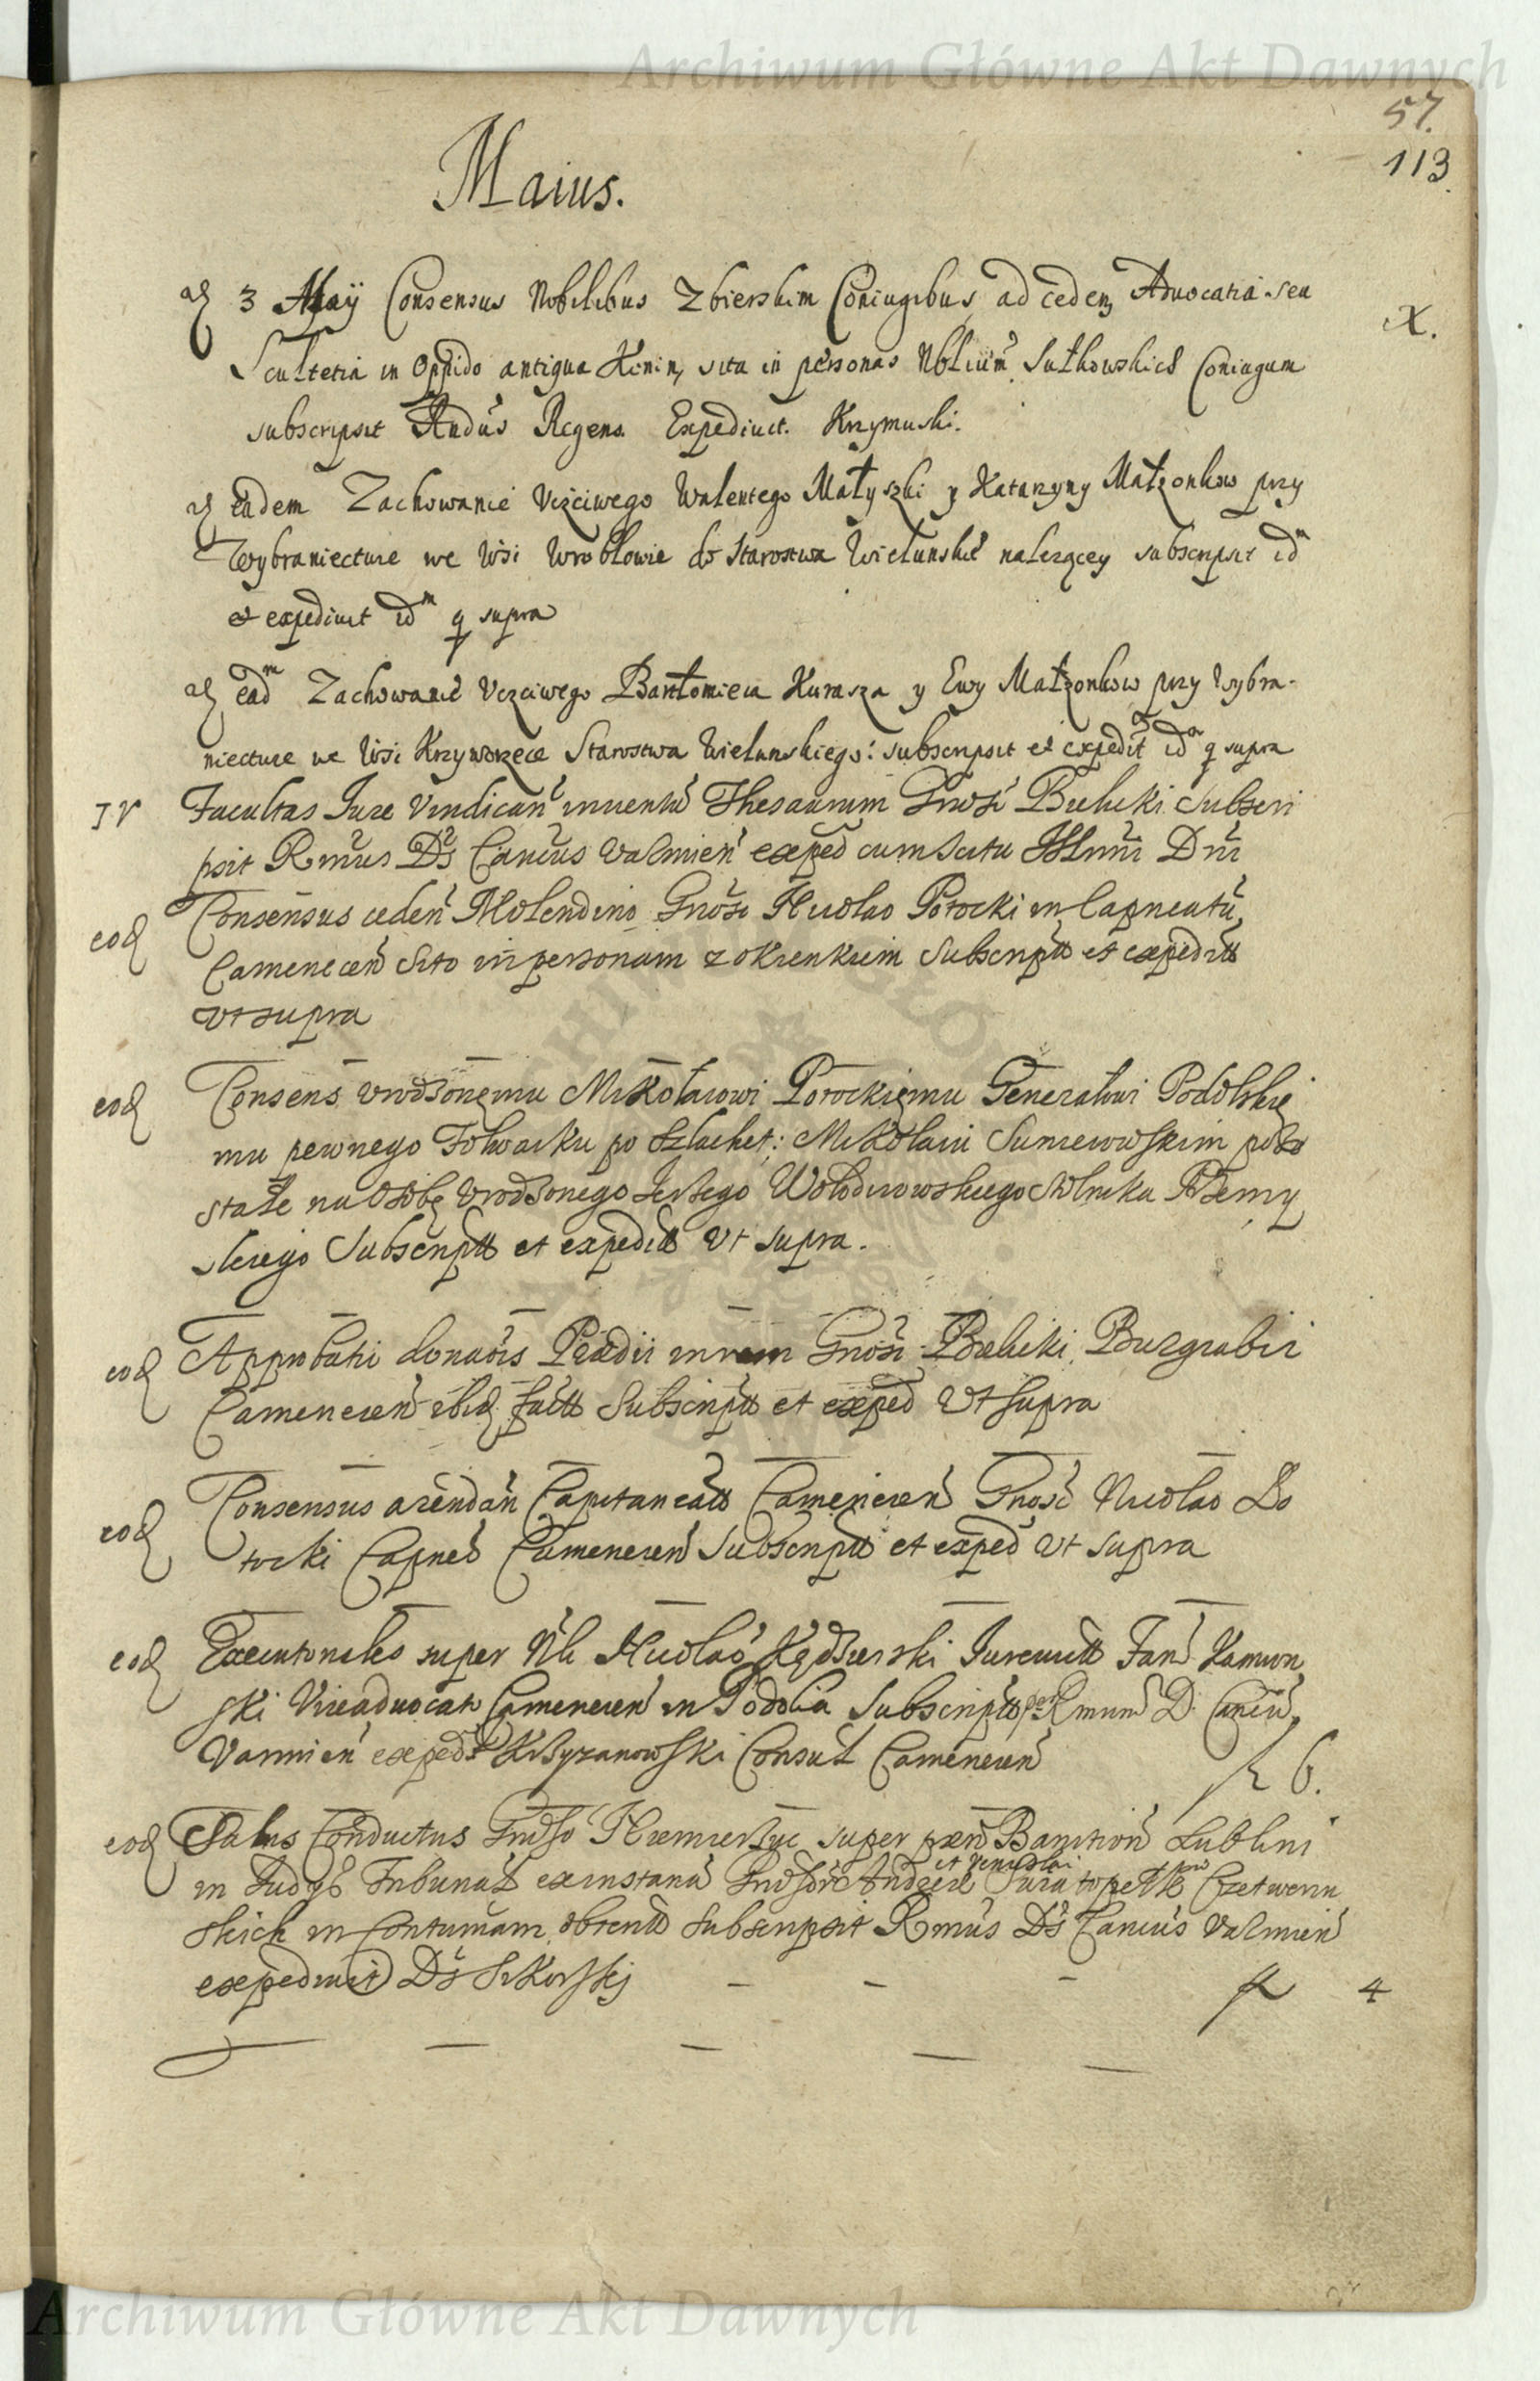 Archiwum Główne Akt Dawnych
57.
113.
Maius.
3 Maÿ Consensus Nobilibus Zbierskim Coniugibus ad ceden Advocatia seu
X.
Scultetia in Oppido antiqua Konin, sita in personas Nbliu͂m Sutkowskich Coniugum
subscripsit Andu͂s Regens Expediuit. Krzymuski.
eadem Zachowanie Vczciwego Walentego Małyszki y Katarzyny Małzonkow przy
Wybraniecture we Wsi Wroblowie do Starostwa Wielunskie nalezącey subscripsit id͂m
et expediuit id͂m q supra
ead͂m Zachowanie Vczciwego Bartłomieia Kurasza y Ewy Małzonkow przy Wybra-
niecture we Wsi Krzyworzece Starostwa Wielunskiego: subscripsit et expedit id͂m q supra
Facultas Iure Vindican inuento Thesaurum Gnoso Bielicki Subscri
psit Rmus Ds Cancius Varmien exped cum scitu Illmi Dni
Consensus ceden Molendino Gnoso Nicolao Potocki in Capneatu
eod
Camenecen Sito in personam Subscriptt et expeditt
Vt supra
eod Consens Vrodzonemu Mikołaiowi Potockiemu Generałowi Podolskie
mu pewnego Folwarku po Szlachet: Mikołaiu pozo
stałe na Osobę Vrodzonego Ierzego Wołodiiowskiego Stolnika Przemy
skiego Subscriptt et expeditt Vt supra.
eod Approbatio donaois Praedii Gnoso Bielicki Burgrabii
Camenecen ibid factt Subscriptt et exped Vt supra
eod Consensus arendan Capitaneatt Camenecen Gnoso Nicolao Po
tocki Capneo Camenecen Subscriptt et exped Vt supra
eod Executoriales super Nb Nicolao Kędzierski Iurewitt Fan
ski Viceadvocato Camenecen in Podolia Subscriptt per Rmum D. Canciu
Varmien exped Krzyzanowski Consul Camenecen
6.
eod Salus Conductus Gnoso super paen Banition Lublini
et
in Iudys Tribunal exinstana Czetwerty
skich in Contumam obtentt Subscripsit Rmus Ds Cancius Varmien
expediuit Ds Sikorskj
4
Archiwum Główne Akt Dawnych